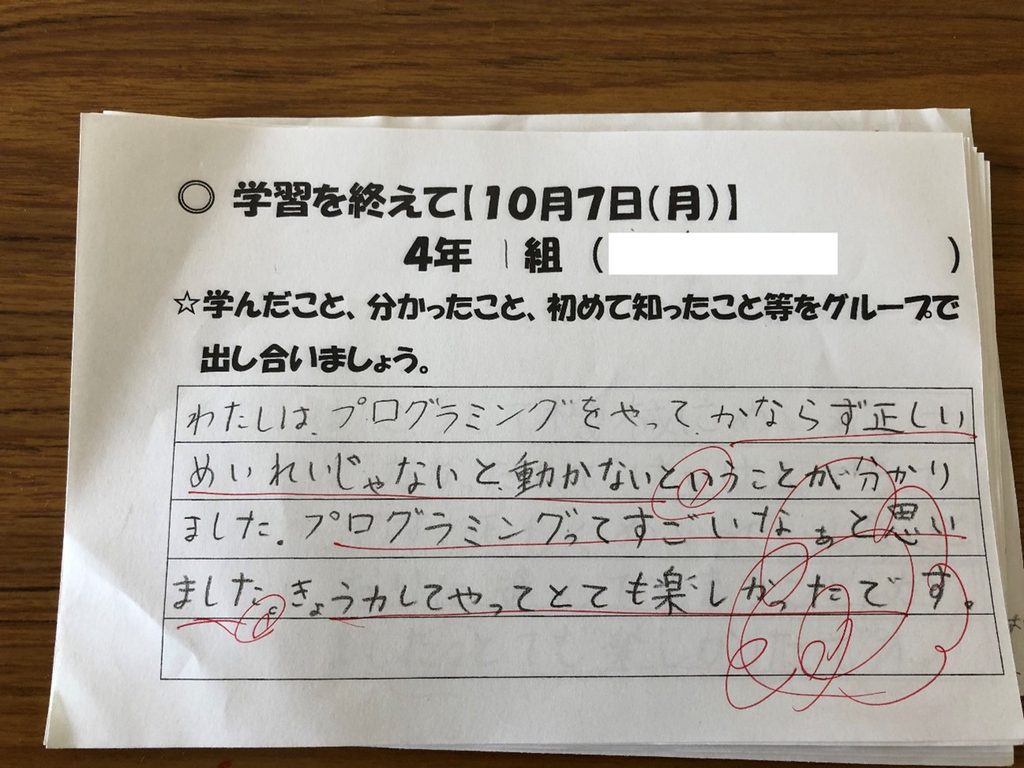 ◎ 学習を終えて【10月7日(月)】
4年 1組 ( )
☆学んだこと、分かったこと、初めて知ったこと等をグループで
出し合いましょう。
わたしは、プログラミングをやって、かならず正しい
めいれいじゃないと、動かないということが分かり
ました。プログラミングってすごいなぁと思い
ました。きょう力してやってとても楽しかったです。